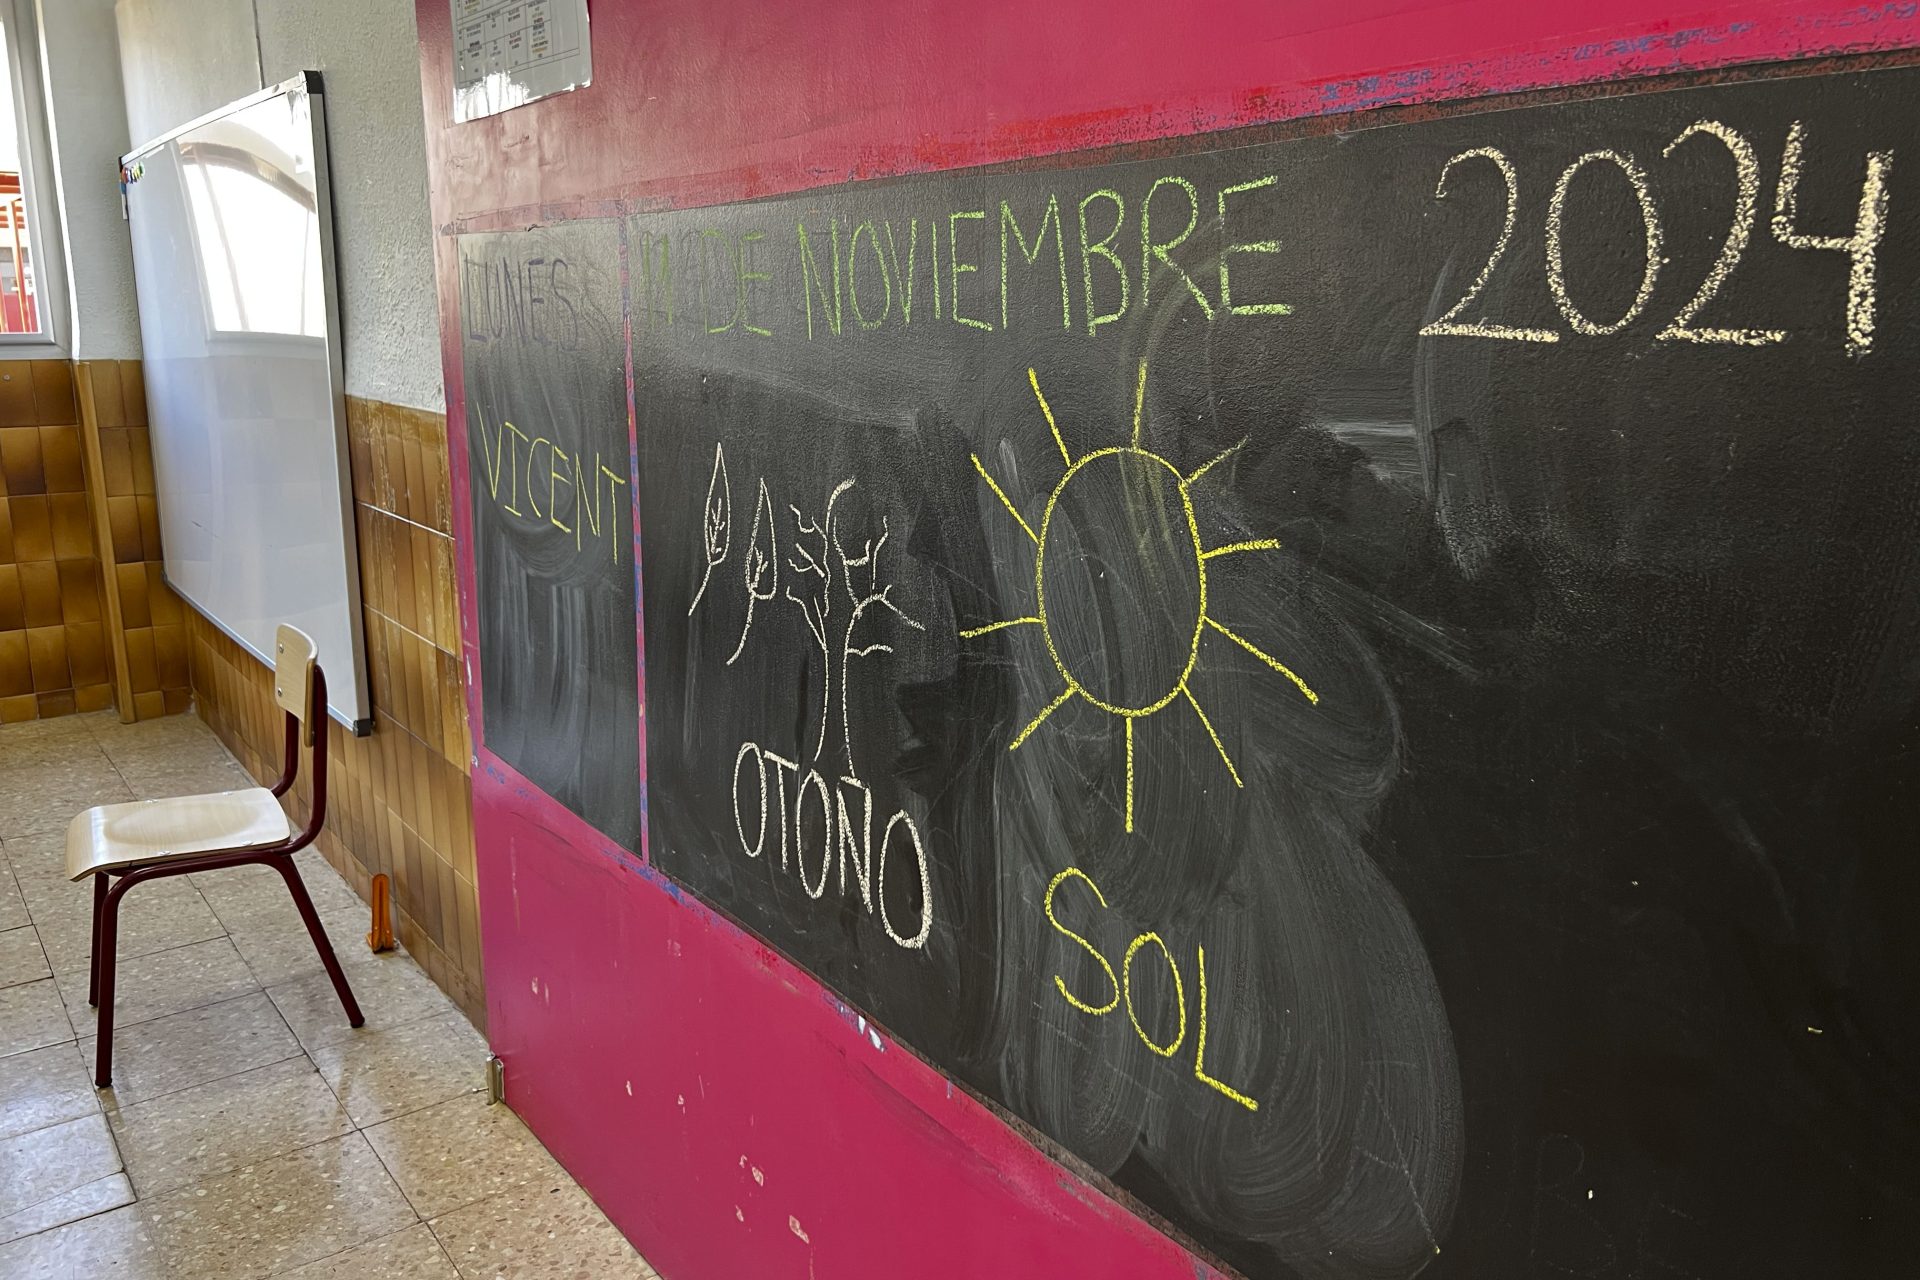 LUNES 11 DE NOVIEMBRE 2024
VICENT
OTOÑO
SOL